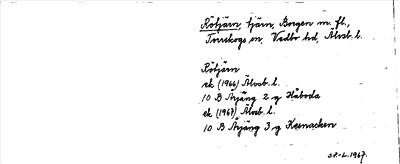 Rötjärn, tjärn, Borgen m. fl.,
Torrskogs sn, Vedbo hd, Älvsb. l.
Rötjärn
ek (1966) Älvsb. l.
10 B Årjäng 2 g Håboda
ek (1967) Älvsb. l.
10 B Årjäng 3 g Kesnacken
1967.